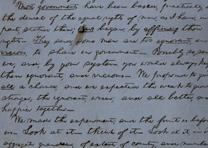 Most governments have been based, practically, on
the denial of the equal rights of men, as I have, in
part, stated them; ours began, by affirming those
rights. They said, some men are too ignorant, and
vicious, to share in government. Possibly so, said
we; and, by your system, you would always keep
them ignorant, and vicious. We proposed to give
all a chance; and we expected the weak to grow
stronger, the ignorant, wiser; and all better, and
happier together.
We made the experiment; and the fruit is before
us. Look at it. Think of it. Look at it, in its
aggregate grandeur, of extent of country, and numbers